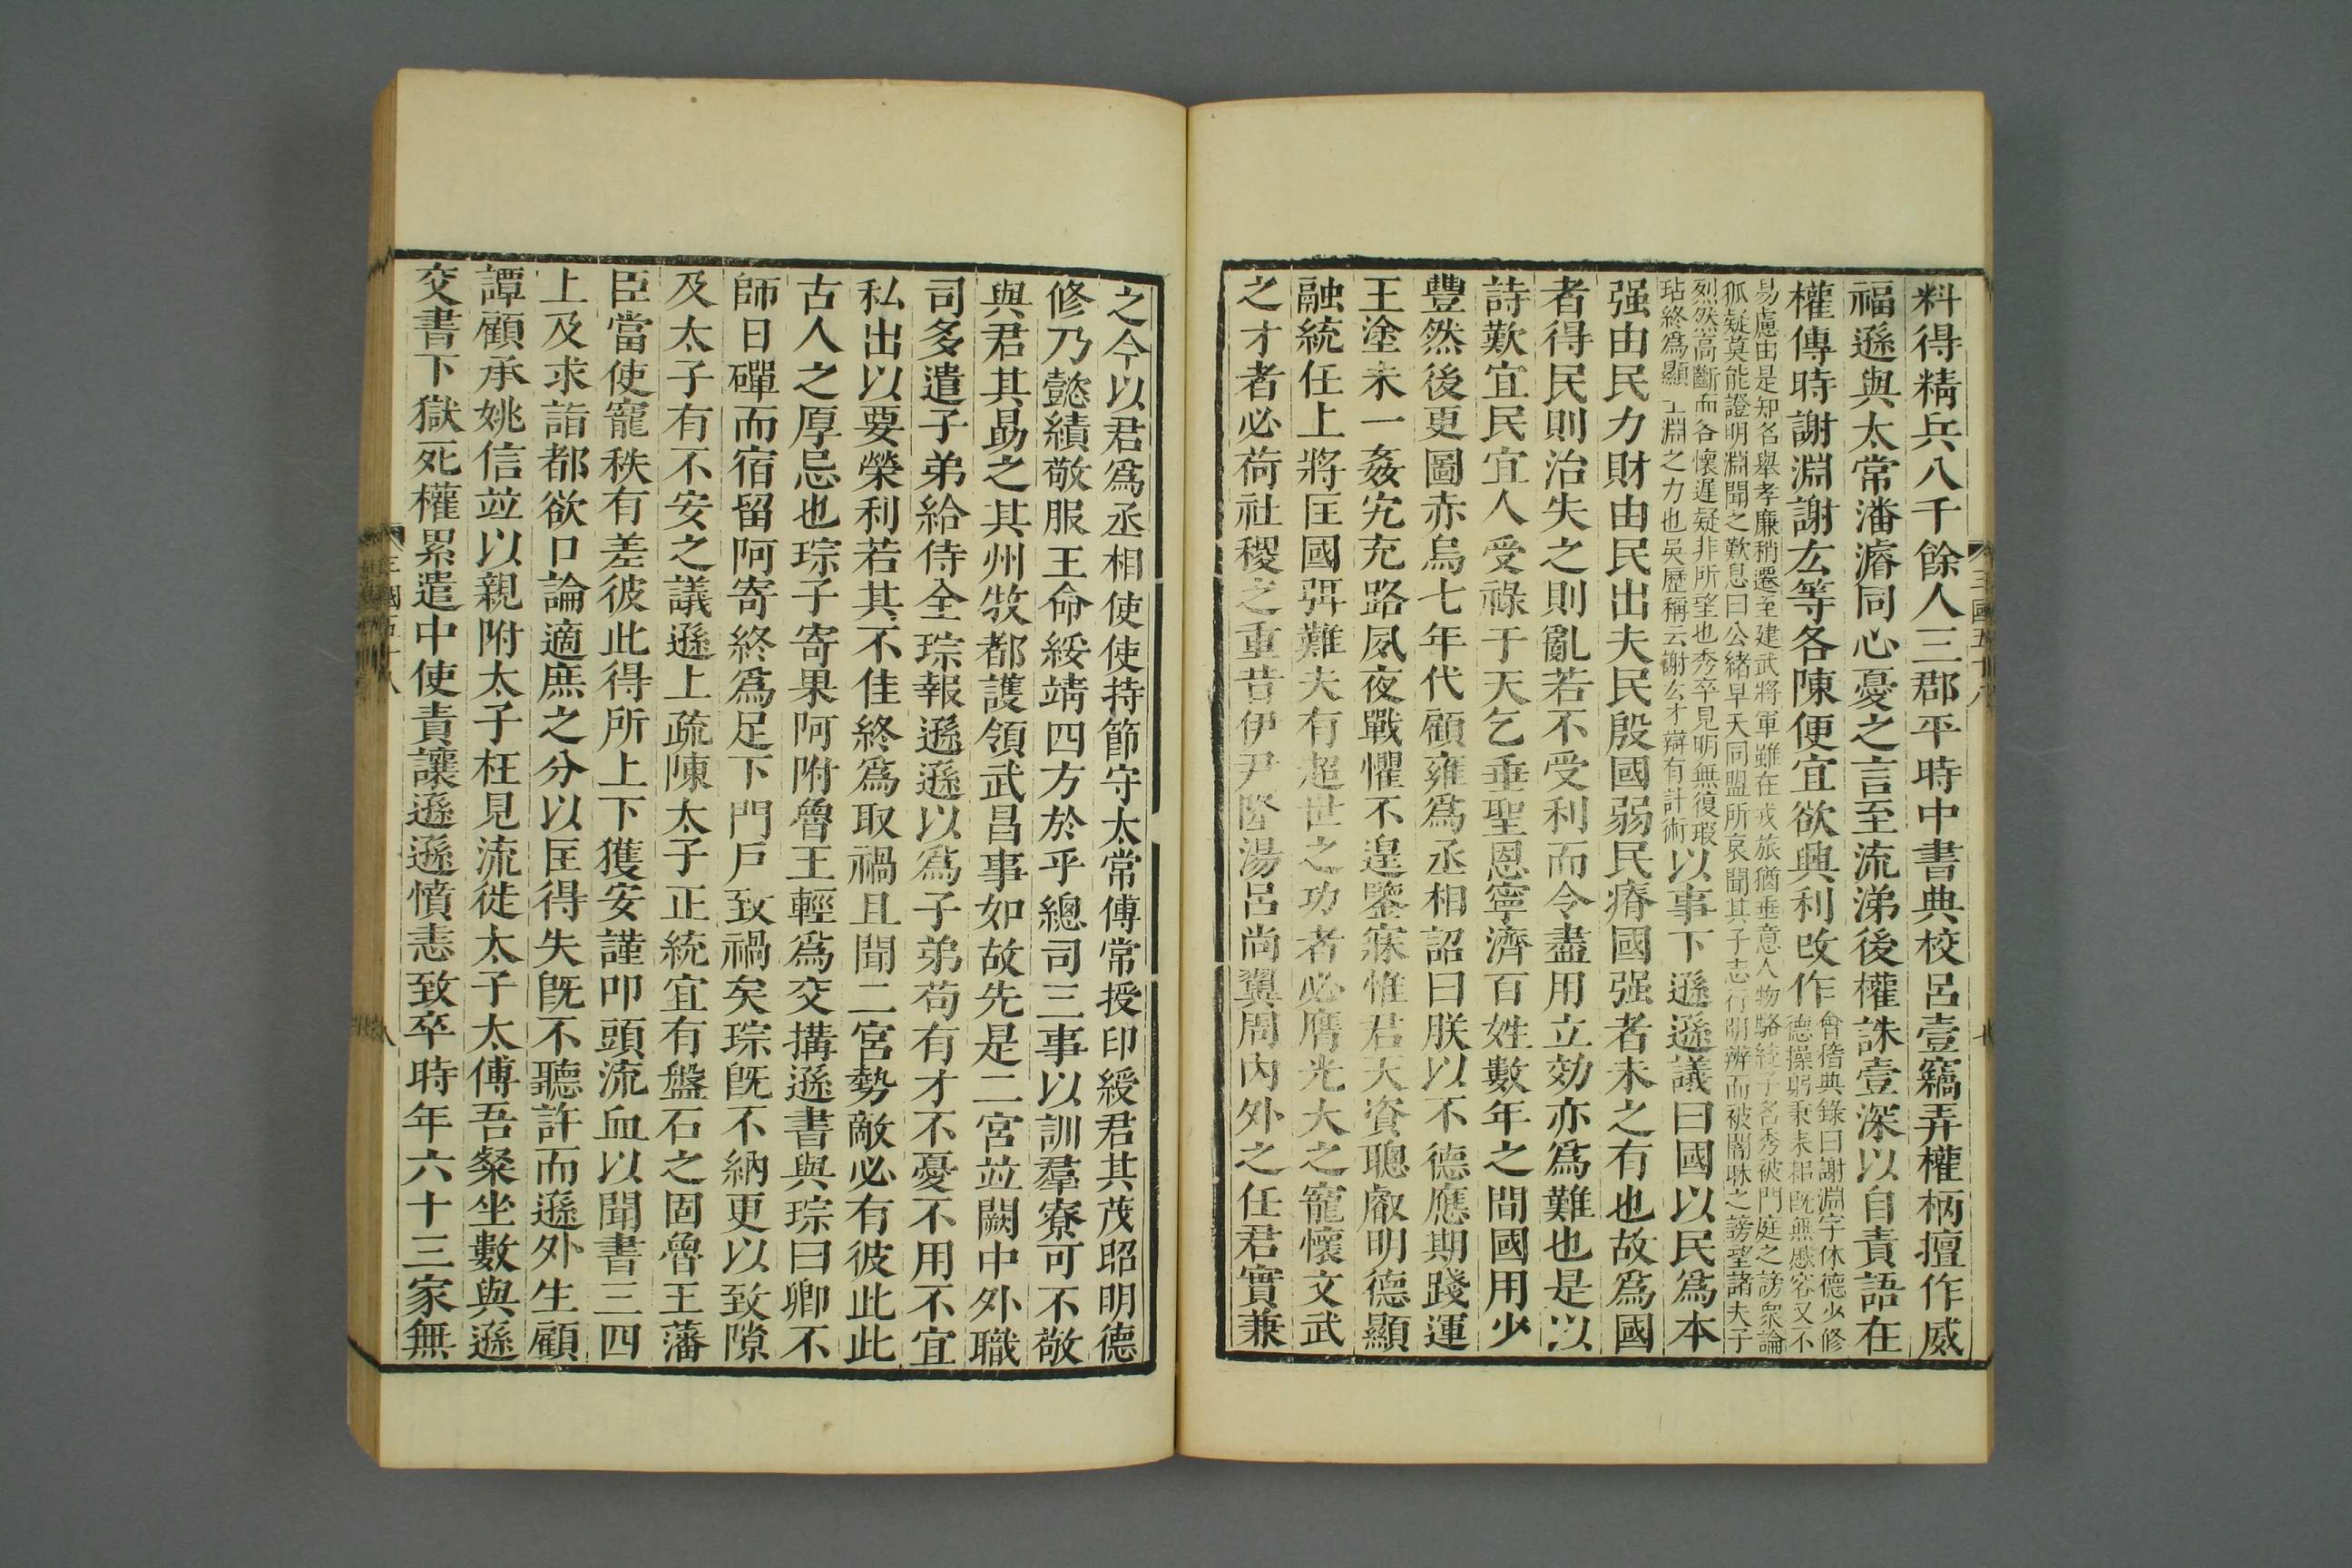 料得精兵八千餘人三郡平時中書典校呂壹竊弄權柄擅作威
福遜與太常潘濬同心憂之言至流涕後權誅壹深以自責語在
權傳時謝淵謝厷等各陳便宜欲興利改作
會稽典錄曰謝淵字休德少修
德操躬秉耒耜既無慼容又不
易慮由是知名舉孝廉稍遷至建武將軍雖在戎旅猶垂意人物駱統子名秀被門庭之謗眾論
狐疑莫能證明淵聞之歎息曰公緒早夭同盟所哀聞其子志行明辨而被闇昧之謗望諸夫子
烈然高斷而各懷遲疑非所望也秀卒見明無復瑕
玷終為顯士淵之力也吳歷稱云謝厷才辯有計術
以事下遜遜議曰國以民為本
强由民力財由民出夫民殷國弱民瘠國强者未之有也故為國
者得民則治失之則亂若不受利而令盡用立効亦為難也是以
詩歎宜民宜人受祿于天乞垂聖恩寧濟百姓數年之間國用少
豐然後更圖赤烏七年代顧雍為丞相詔曰朕以不德應期踐運
王塗未一姦宄充路夙夜戰懼不遑鑒寐惟君天資聰叡明德顯
融統任上將匡國弭難夫有超世之功者必膺光大之寵懷文武
之才者必荷社稷之重昔伊尹隆湯呂尚翼周內外之任君實兼
之今以君為丞相使使持節守太常傅常授印綬君其茂昭明德
修乃懿績敬服王命綏靖四方於乎總司三事以訓羣寮可不敬
與君其勗之其州牧都護領武昌事如故先是二宮竝闕中外職
司多遣子弟給侍全琮報遜遜以為子弟苟有才不憂不用不宜
私出以要榮利若其不佳終為取禍且聞二宮勢敵必有彼此此
古人之厚忌也琮子寄果阿附魯王輕為交搆遜書與琮曰卿不
師日磾而宿留阿寄終為足下門戶致禍矣琮既不納更以致隙
及太子有不安之議遜上疏陳太子正統宜有盤石之固魯王藩
臣當使寵秩有差彼此得所上下獲安謹叩頭流血以聞書三四
上及求詣都欲口論適庶之分以匡得失既不聽許而遜外生顧
譚顧承姚信竝以親附太子枉見流徙太子太傅吾粲坐數與遜
交書下獄死權累遣中使責讓遜遜憤恚致卒時年六十三家無